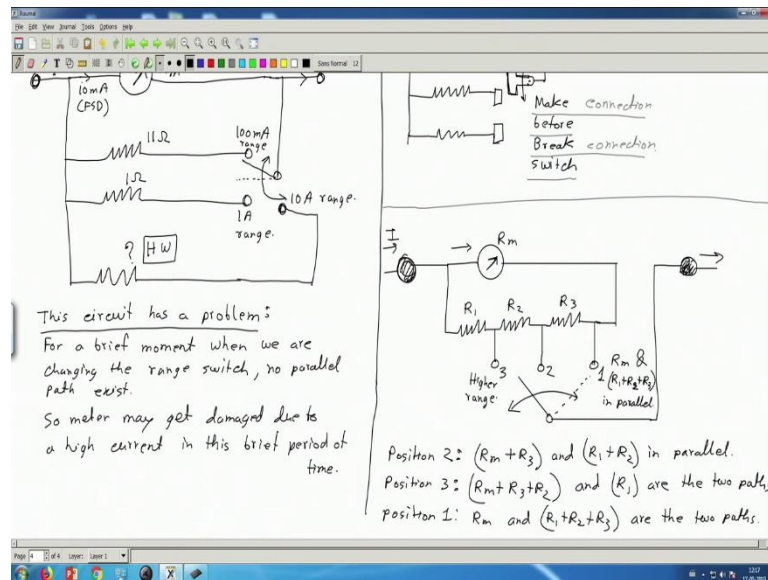 Xournal
File Edit View Journal Tools Options Help
Sans Normal 12
10mA
(FSD)
11Ω
100mA
range
1Ω
10A range.
1A
range.
? HW
This circuit has a problem:
For a brief moment when we are
changing the range switch, no parallel
path exist.
So meter may get damaged due to
a high current in this brief period of
time.
Make connection
before
Break connection
switch
I
Rm
R1 R2 R3
3 2 1
Higher
range.
Rm &
(R1+R2+R3)
in parallel
Position 2: (Rm + R3) and (R1 + R2) in parallel.
Position 3: (Rm + R3 + R2) and (R1) are the two paths.
position 1: Rm and (R1 + R2 + R3) are the two paths.
Page 4 of 4 Layer: Layer 1
12:17